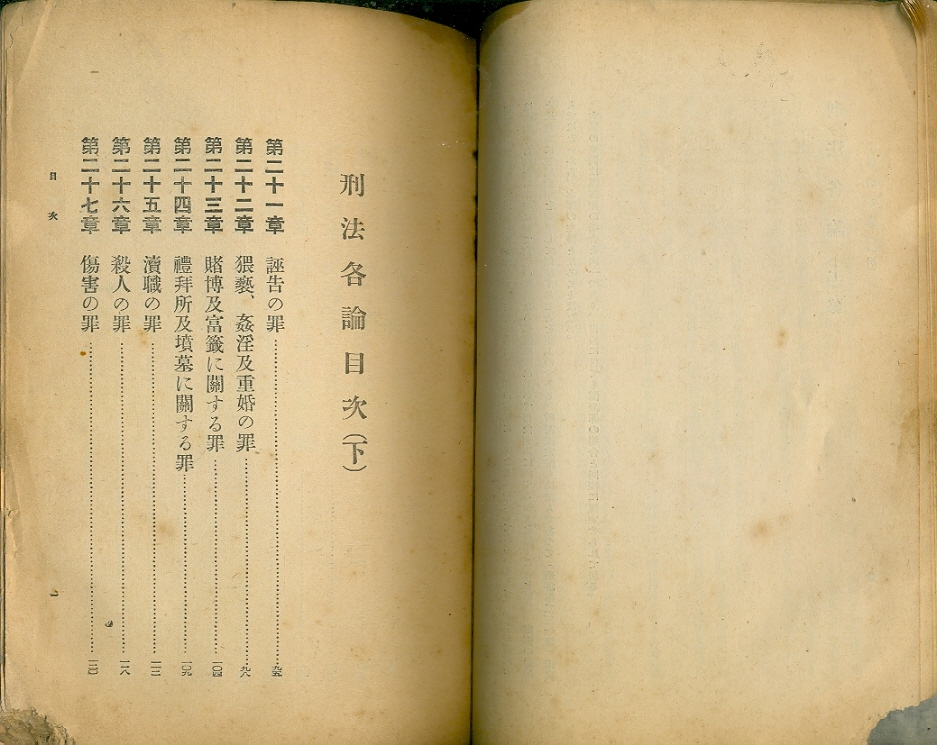 刑法各論目次(下)
第二十一章 誣告の罪……九五
第二十二章 猥褻、姦淫及重婚の罪……九八
第二十三章 賭博及富籤に關する罪……一〇四
第二十四章 禮拜所及墳墓に關する罪……一〇九
第二十五章 瀆職の罪……一一二
第二十六章 殺人の罪……一一八
第二十七章 傷害の罪……一二〇
目次
一